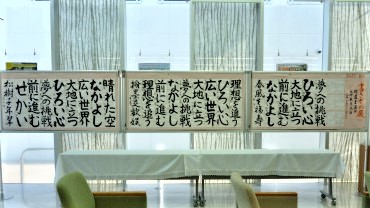 夢への挑戦
ひろい心
大地に立つ
前に進む
なかよし
理想を追う
ひろい心
広い世界
大地に立つ
夢への挑戦
なかよし
前に進む
理想を追う
晴れた空
なかよし
広い世界
大地に立つ
ひろい心
夢への挑戦
前に進む
せかい